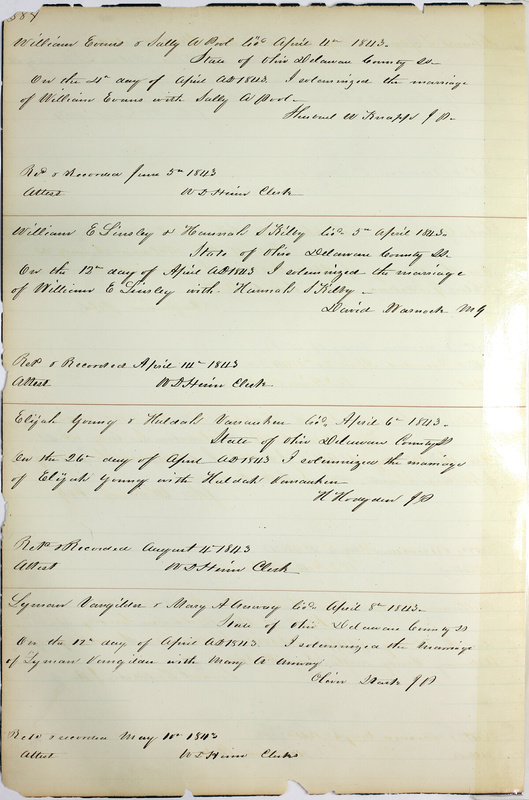 384
William Evans & Sally A Pool Licd April 4th 1843.
State of Ohio Delaware County Ss.
On the 4th day of April AD 1843 I solemnized the marriage
of William Evans with Sally A Pool.
W Knapp J P.
Retd & Recorded June 5th 1843
Attest W D Heim Clerk
William E Linsley & Hannah S Kilby Licd 5th April 1843.
State of Ohio Delaware County Ss.
On the 12th day of April AD 1843 I solemnized the marriage
of William E Linsley with Hannah S Kilby.
David Warnock M G
Retd & Recorded April 14th 1843
Attest W D Heim Clerk
Elijah Young & Huldah Vanauken Licd April 6th 1843.
State of Ohio Delaware County Ss
On the 26th day of April AD 1843 I solemnized the marriage
of Elijah Young with Huldah Vanauken
H Hodgden J P
Retd & Recorded August 4th 1843
Attest W D Heim Clerk
Lyman Vangilder & Mary A Licd April 8th 1843.
State of Ohio Delaware County Ss
On the 12th day of April AD 1843. I solemnized the marriage
of Lyman Vangilder with Mary A
J P
Retd & recorded May 10th 1843
Attest W D Heim Clerk